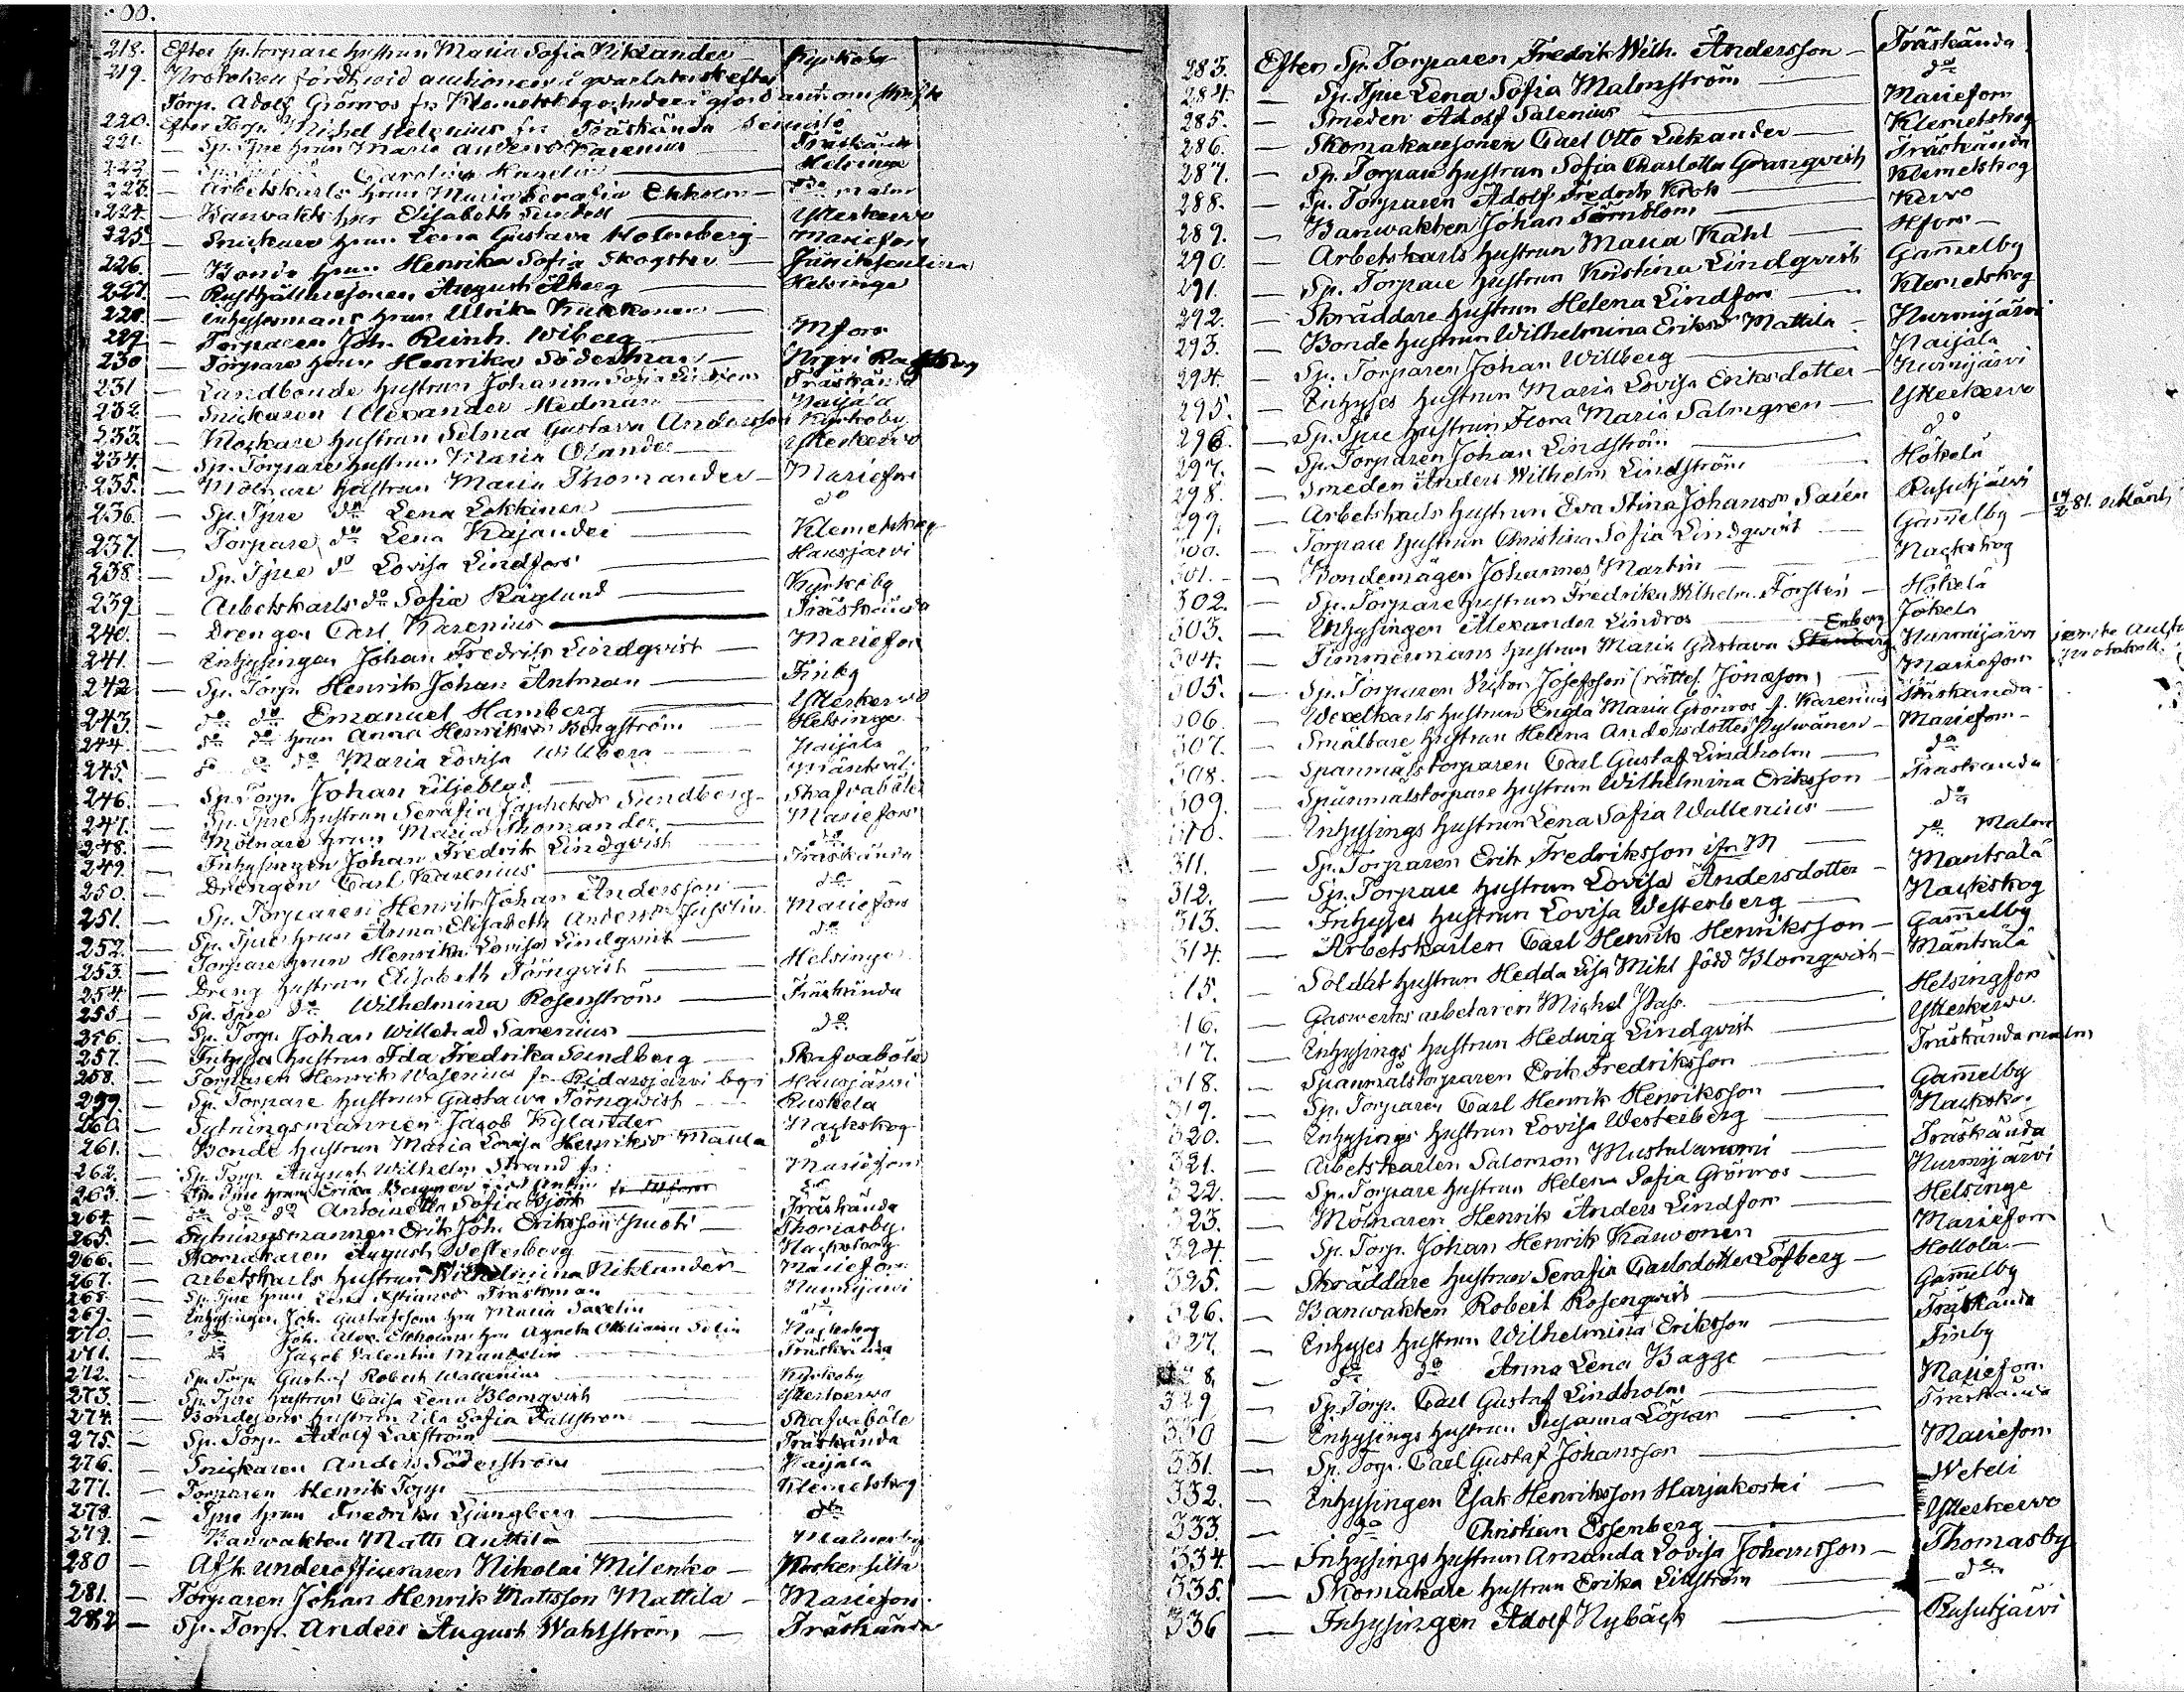 218. Efter Sp. torpare hustrun Maria Sofia Niklander — Kyrkoby
219. Protokoll fördt wid auktionen i qwarlatenskefter
Torp. Adolf Grönroos fr. Klemetskog
220. Efter Torp. Michel Helenius fr. Träskända
221. — Sp. Tjre hrun Maria Karenius — Träskända
222. — Carolina — Helsinge
223. — Arbetskarls hrun Maria Serafia Ekholm — do malm
224. — Banwakts hrun Elisabeth Sundell — Ytterkerwo
225. — Snickare hrun Lena Gustava Holmberg — Mariefors
226. — Bonde hrun Henrika Sofia Skogster —
227. — Rusthållaresonen August Åberg — Helsinge
228. — Inhysesmans hrun Ulrika Kukkonen —
229. — Torparen Joh. Reinh. Wiberg — Mfors
230 — Torpare hrun Henrika Söderman —
231 — Landbonde hustrun Johanna Sofia — Träskända
232. — Snickaren Alexander Hedman — Paijala
233. — Klockare hustrun Selma Gustava Andersson Kyrkoby
234. — Sp. Torpare hustrun Maria Olander — Ytterkerwo
235. — Mölnare hustrun Maria Thomander — Mariefors
236. — Sp. Tjre do Lena Lokkinen — do
237. — Torpare do Lena Kajander — Klemetskog
238 — Sp. Tjre do Lovisa Lindfors — Hausjärvi
239 — Arbetskarls do Sofia Råglund — Kyrkoby
240. — Drengen Carl Karenius — Träskända
241. — Inhysingen Johan Fredrik Lindqvist — Mariefors
242 — Sp. Torp. Henrik Johan Äntman — Finby
243. — do do Emanuel Hamberg — Ytterkerwo
244 — do do hrun Anna Henriksdr Bergström — Helsinge
245. — do do do Maria Lovisa Willberg — Paijala
246. — Sp. Torp. Johan Liljeblad —
247. — Sp. Tjre hustrun Serafia Japhetsdr Sundberg — Skafvaböle
248. — Mölnare hrun Maria Thomander — Mariefors
249. — Inhysingen Johan Fredrik Lindqvist — do
250. — Drengen Carl Karenius — Träskända
251. — Sp. Torparen Henrik Johan Andersson — do
252. — Sp. Tjre hrun Anna Elisabeth Andersdr Jusslin Mariefors
253. — Torpare hrun Henrika Lovisa Lindqvist — do
254. — Dreng hustrun Elisabeth Törnqvist — Helsinge
255 — Sp. Tjre do Wilhelmina Rosenström — Träskända
256. — Sp. Torp. Johan Willehad Sarenius — do
257. — Inhyses hustrun Ida Fredrika Sundberg — Skafvaböle
258. — Torparen Henrik Wasenius fr. Ridasjärvi by i Hausjärvi
259. — Sp. Torpare hustrun Gustawa Törnqwist — Ruskela
260. — Sytningsmannen Jacob Kylander — Nackskog
261. — Bonde hustrun Maria Lovisa Henriksdr Mattila do
262. — Sp. Torp. August Wilhelm Strand — Mariefors
263. — Sp. Tjre hrun Erika — do
264. — do do do Antoinetta Sofia Björk — Träskända
265. — Sytningsmannen Erik Joh. Eriksson — Thomasby
266. — Skomakaren August Westerberg — Nackskog
267. — Arbetskarls hustrun Wilhelmina Niklander — Mariefors
268. — Sp. Tjre hrun Lena Träskman — Nurmijärvi
269. — Inhysingen Joh. Gustafsson hru Maria — do
270. — do Joh. Alex. Ekholms hru Agneta Nackskog
271 — do Jacob Valentin Mandelin — Träskända
272. — Sp. Torp. Gustaf Robert Wallenius — Kyrkoby
273. — Sp. Tjre hustrun Caisa Lena Blomqvist — Ytterkerwo
274. — Bondesons hustrun Ida Sofia Fallström — Skafvaböle
275. — Sp. Torp. Adolf Laxström — Träskända
276. — Snickaren Anders Söderström — Paijala
277. — Torparen Henrik Topp — Klemetskog
278. — Tjre hrun Fredrika Ljungberg — do
279. — Banwakten Matts Anttila — Malmerby
280 — Afsk. underofficeraren Nikolai Milenko —
281. — Torparen Johan Henrik Mattsson Mattila — Mariefors
282 — Sp. Torp. Anders August Wahlström — Träskända
283. Efter Sp. Torparen Fredrik Wilh. Andersson — Träskända
284. — Sp. Tjre Lena Sofia Malmström — do
285. — Smeden Adolf Salenius — Mariefors
286. — Skomakaresonen Carl Otto Lukander — Klemetskog
287. — Sp. Torpare hustrun Sofia Charlotta Granqvist Träskända
288. — Sp. Torparen Adolf Fredrik Krok — Klemetskog
289. — Banwakten Johan Törnblom — Kerwo
290. — Arbetskarls hustrun Maria Kahl — Hfors
291. — Sp. Torpare hustrun Kristina Lindqvist Gammelby
292. — Skräddare hustrun Helena Lindfors — Klemetskog
293. — Bonde hustrun Wilhelmina Eriksdr Mattila — Nurmijärvi
294. — Sp. Torparen Johan Willberg — Paijala
295. — Inhyses hustrun Maria Lovisa Eriksdotter — Nurmijärvi
296. — Sp. Tjre hustrun Flora Maria Salmgren — Ytterkerwo
297. — Sp. Torparen Johan Lindström — do
298. — Smeden Anders Wilhelm Lindström — Hökelä
299. — Arbetskarls hustrun Eva Stina Johansdr Salen Rusutjärvi
300. — Torpare hustrun Christina Sofia Lindqvist — Gammelby — 14/2 81.
301. — Bondemågen Johannes Martin — Nackskog
302. — Sp. Torpare hustrun Fredrika Wilhelm. Forsten — Hökelä
303. — Inhysingen Alexander Lindros — Jokela
304. — Timmermans hustrun Maria Gustava Stenberg Enberg Nurmijärvi
305. — Sp. Torparen Victor Josefsson (rättel. Jönsson) — Mariefors
306. — Wexelkarls hustrun Engla Maria Grönros f. Karenius Träskända
307. — Smältare hustrun Helena Andersdotter — Mariefors
308. — Spanmålstorparen Carl Gustaf Lindholm — do
309. — Spanmålstorpare hustrun Wilhelmina Eriksson — Träskända
310. — Inhysings hustrun Lena Sofia Wallenius — do
311. — Sp. Torparen Erik Fredriksson ifr. M — do Malm
312. — Sp. Torpare hustrun Lovisa Andersdotter — Mäntsälä
313. — Inhyses hustrun Lovisa Westerberg — Nackskog
314. — Arbetskarlen Carl Henrik Henriksson — Gammelby
315. — Soldat hustrun Hedda Lisa Mihl född Blomqwist — Mäntsälä
316. — Gaswerks arbetaren Michel — Helsingfors
317. — Inhysings hustrun Hedwig Lindqvist — Ytterkerwo
318. — Spanmålstorparen Erik Fredriksson — Träskända malm
319. — Sp. Torparen Carl Henrik Henriksson — Gammelby
320. — Inhysings hustrun Lovisa Westerberg — Nackskog
321. — Arbetskarlen Salomon Mustalammi — Träskända
322. — Sp. Torpare hustrun Helena Sofia Grönros — Nurmijärvi
323. — Mölnaren Henrik Anders Lindfors — Helsinge
324. — Sp. Torp. Johan Henrik Karwonen — Mariefors
325. — Skräddare hustrun Serafia Carlsdotter Löfberg — Hollola
326. — Banwakten Robert Rosenqvist — Gammelby
327. — Inhyses hustrun Wilhelmina Eriksson — Träskända
328. — do do Anna Lena Bagge — Finby
329 — Sp. Torp. Carl Gustaf Lindholm — Mariefors
330 — Inhysings hustrun Susanna Löpar — Träskända
331. — Sp. Torp. Carl Gustaf Johansson — Mariefors
332. — Inhysingen Isak Henriksson Harjakoski — Weteli
333. — do Christian Essenberg — Ytterkerwo
334. — Inhysings hustrun Amanda Lovisa Johansson — Thomasby
335. — Skomakare hustrun Erika Lidström — do
336 — Inhysingen Adolf Nybäck — Rusutjärvi